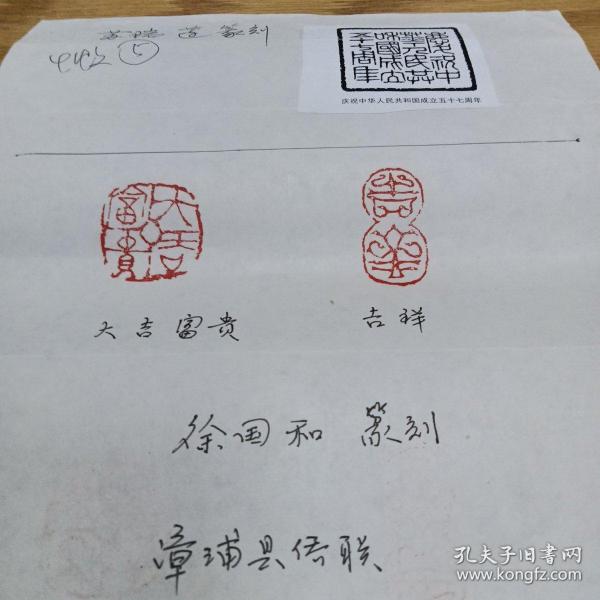 篆刻
⑤
庆祝中华人民共和国成立五十七周年
大吉富贵
吉祥
大吉富贵
吉祥
徐国和 篆刻
漳浦县侨联
孔夫子旧书网
www.kongfz.com